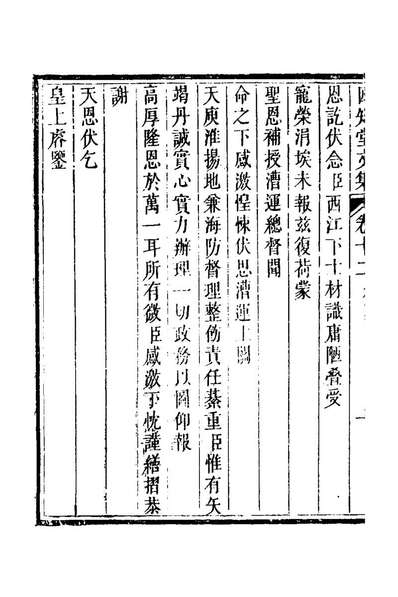 恩訖伏念臣西江下士材識庸陋叠受
寵榮涓埃未報茲復荷蒙
聖恩補授漕運總督聞
命之下感激惶悚伏思漕運上關
天庾淮揚地兼海防督理整飭責任綦重臣惟有矢
竭丹誠實心實力辦理一切政務以圖仰報
高厚隆恩於萬一耳所有微臣感激下忱謹繕摺恭
謝
天恩伏乞
皇上睿鑒